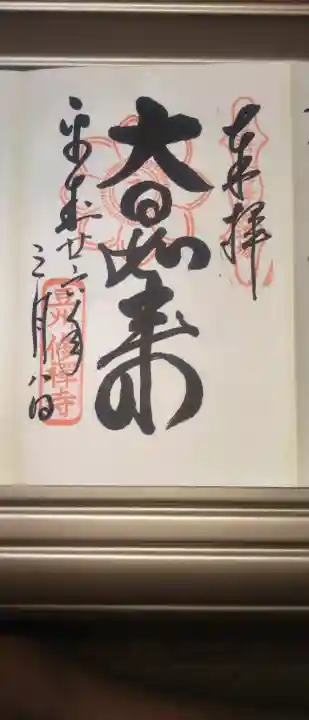 奉拝
大日如来
平成廿六年
三月八日
豆州修禅寺